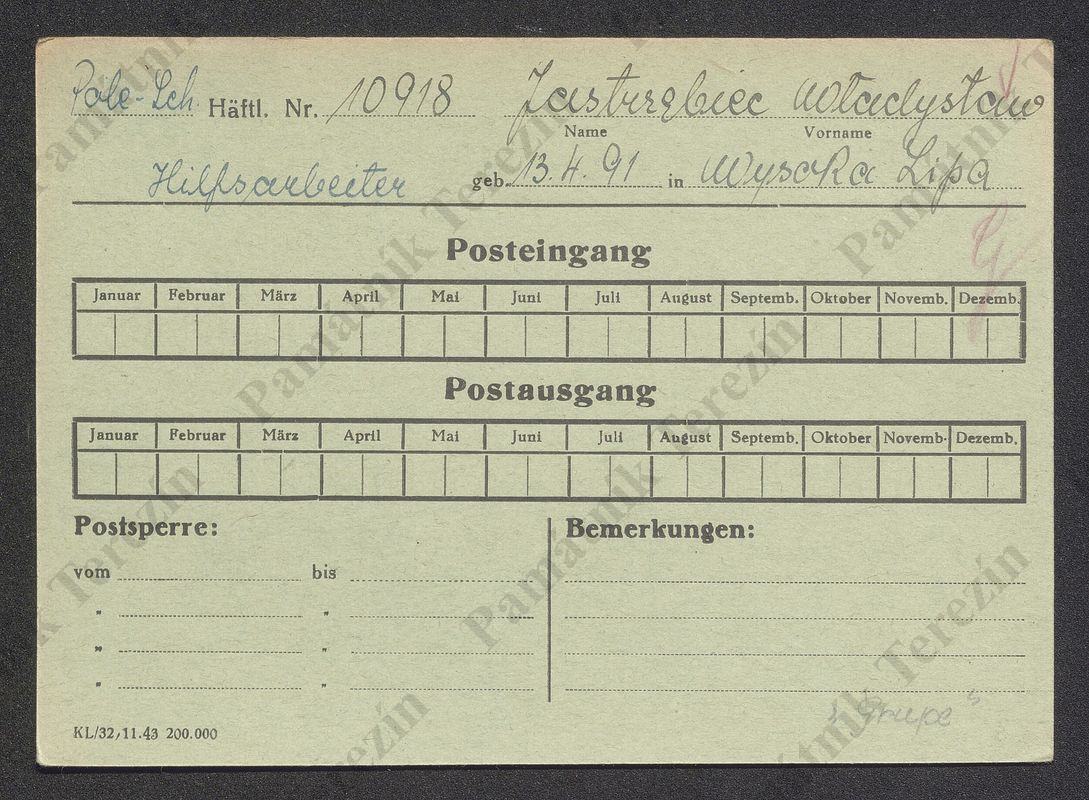 Pole-Sch. Häftl. Nr. 10918 Jastrzębiec Władysław
Name Vorname
Hilfsarbeiter geb. 13.4.91 in Wysoka Lipa
Posteingang
Januar Februar März April Mai Juni Juli August Septemb. Oktober Novemb. Dezemb.
Postausgang
Januar Februar März April Mai Juni Juli August Septemb. Oktober Novemb. Dezemb.
Postsperre: Bemerkungen:
vom bis
" "
" "
" "
KL/32,11.43 200.000
Památník Terezín